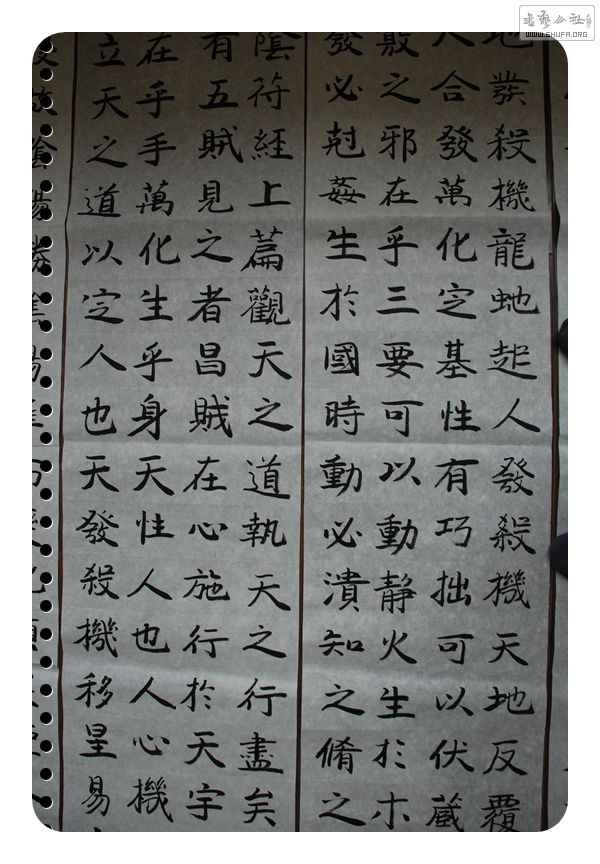 書藝公社
WWW.SHUFA.ORG
地發殺機龍虵起人發殺機天地反覆
人合發萬化定基性有巧拙可以伏蔵
竅之邪在乎三要可以動静火生扵木
發必剋姦生於國時動必潰知之脩之
陰符經上篇觀天之道執天之行盡矣
有五賊見之者昌賊在心施行於天宇
在乎手萬化生乎身天性人也人心機
立天之道以定人也天發殺機移星易